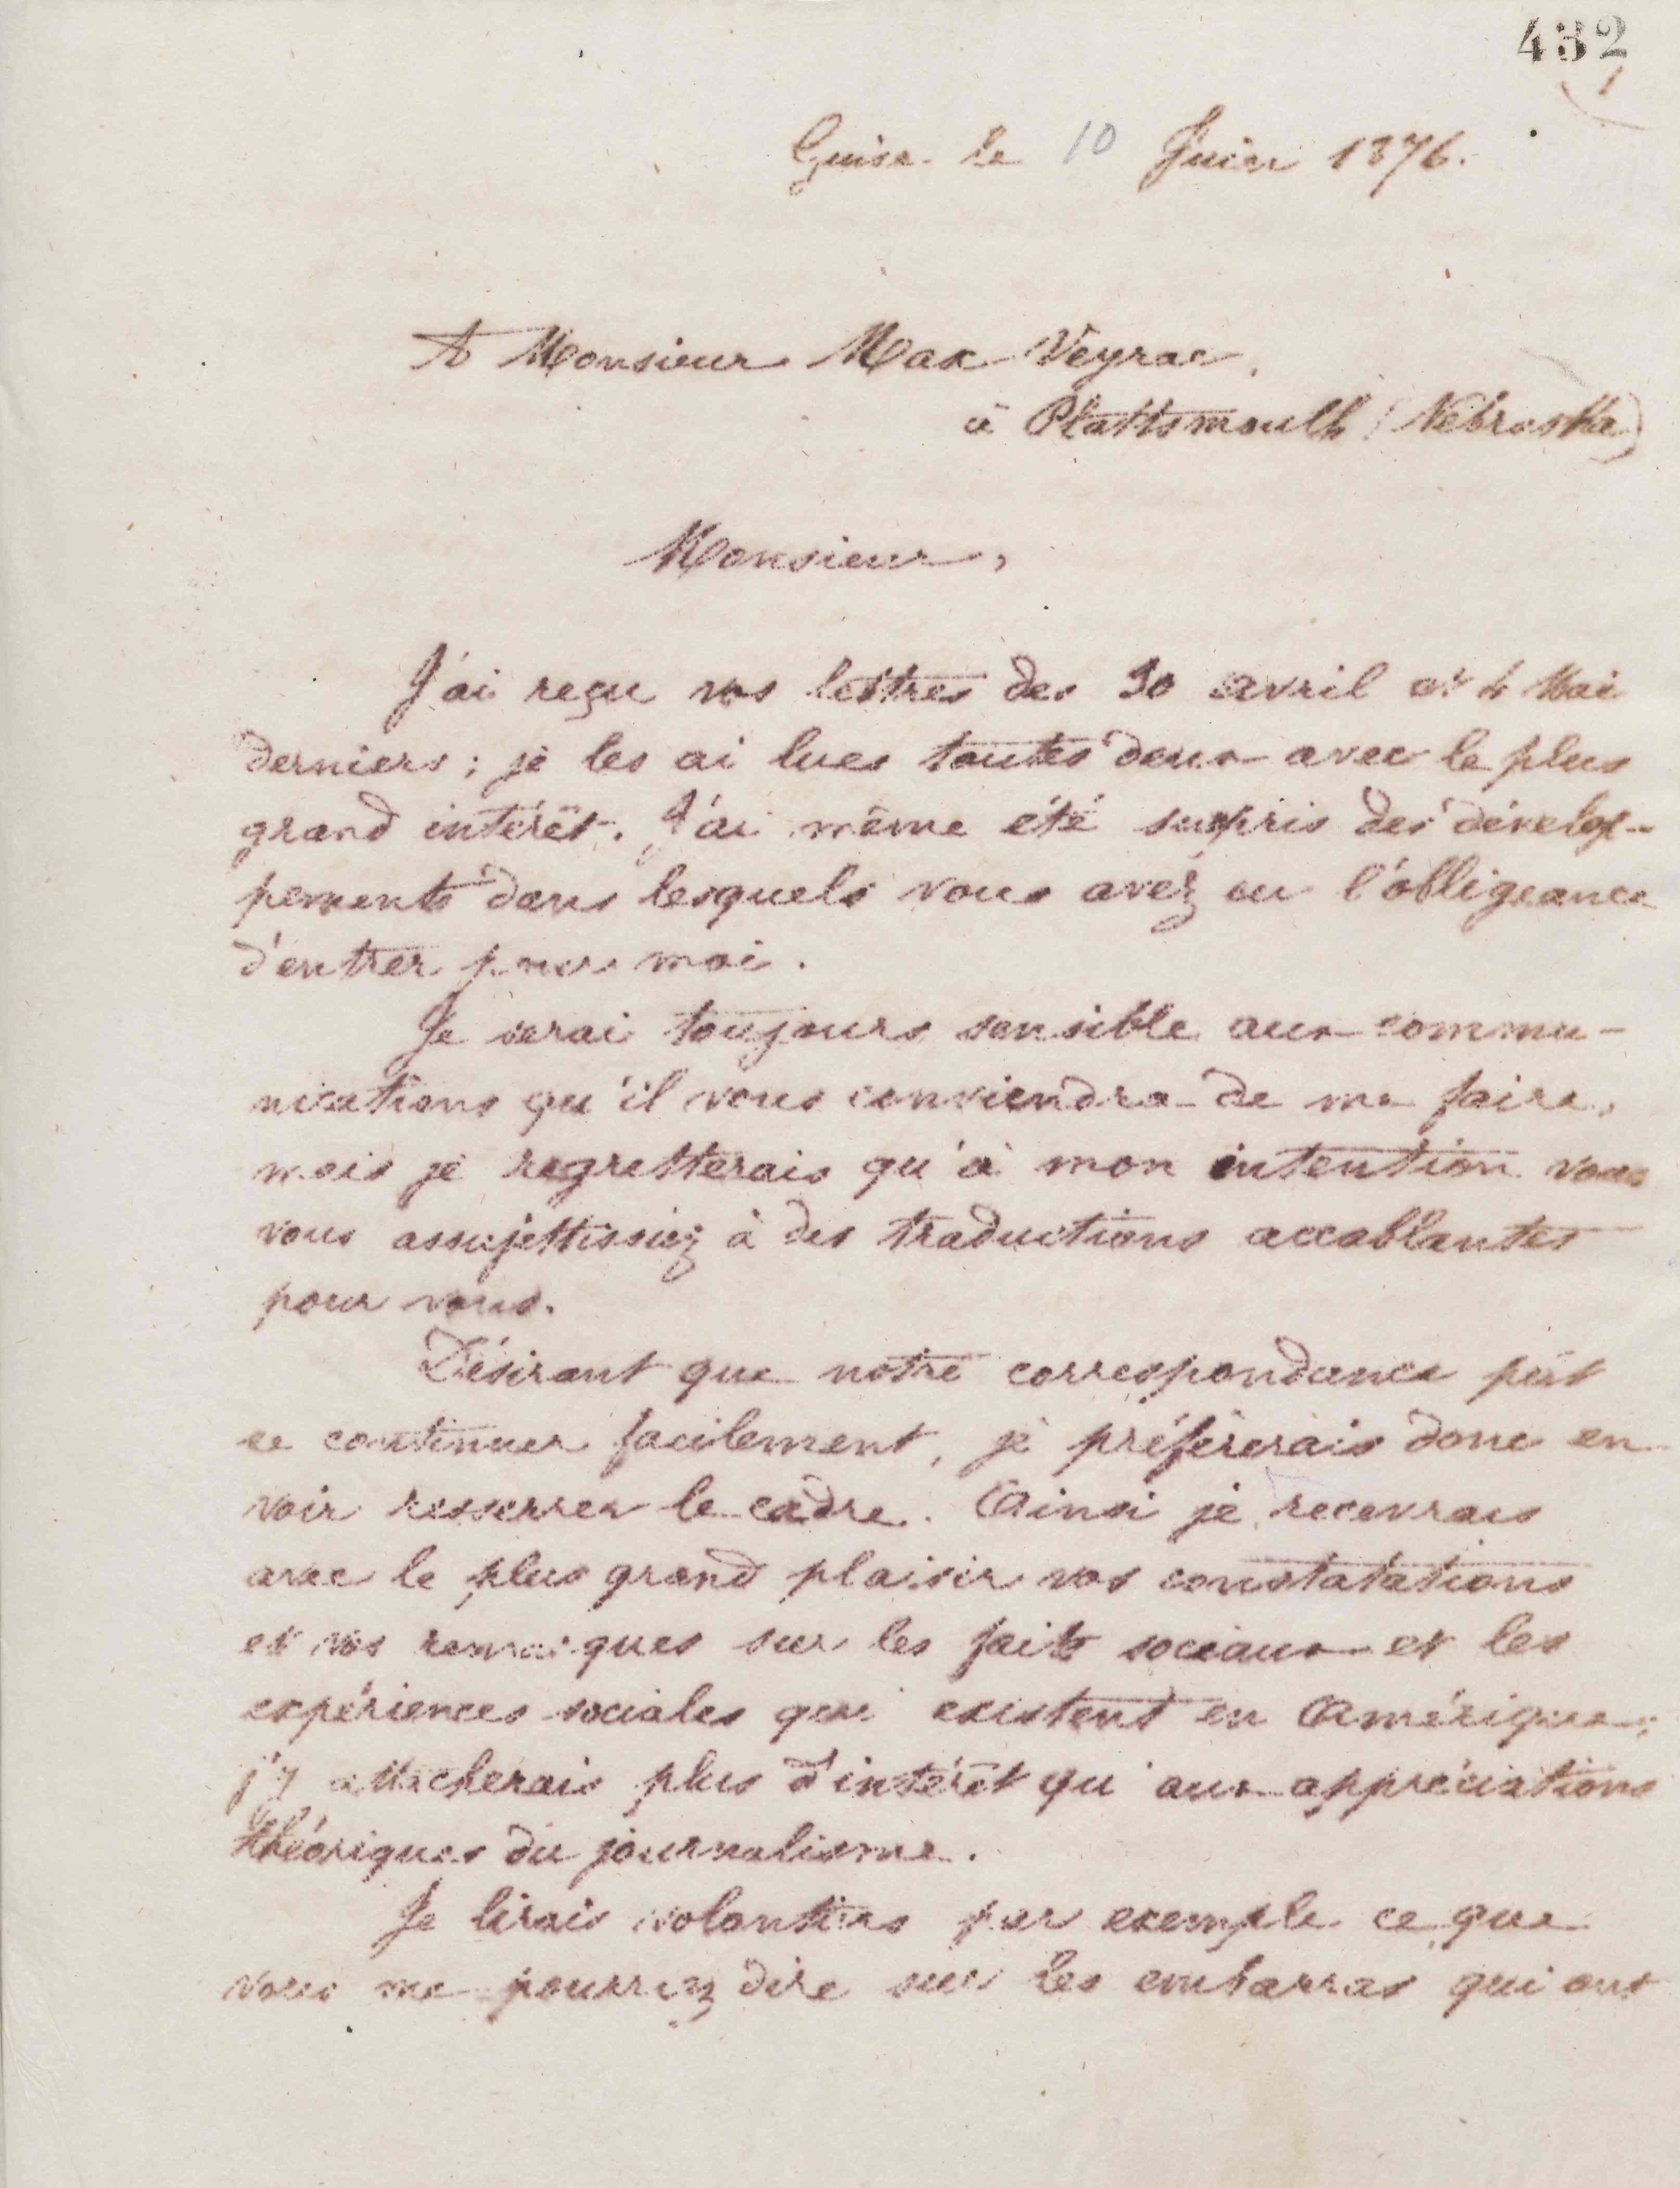 432
1
Guise le 10 Juin 1876.
A Monsieur Max Veyrac,
à Plattsmouth (Nebraska)
Monsieur,
J'ai reçu vos lettres des 30 avril et 4 Mai
derniers ; je les ai lues toutes deux avec le plus
grand intérêt. J'ai même été surpris des dévelop-
pements dans lesquels vous avez eu l'obligeance
d'entrer pour moi.
Je serai toujours sensible aux commu-
nications qu'il vous conviendra de me faire,
mais je regretterais qu'à mon intention vous
vous assujettissiez à des traductions accablantes
pour vous.
Désirant que notre correspondance pût
se continuer facilement, je préférerais donc en
voir resserrer le cadre. Ainsi je recevrais
avec le plus grand plaisir vos constatations
et vos remarques sur les faits sociaux et les
expériences sociales qui existent en Amérique ;
j'y attacherais plus d'intérêt qu'aux appréciations
théoriques du journalisme.
Je lirais volontiers par exemple ce que
vous me pourriez dire sur les embarras qui ont